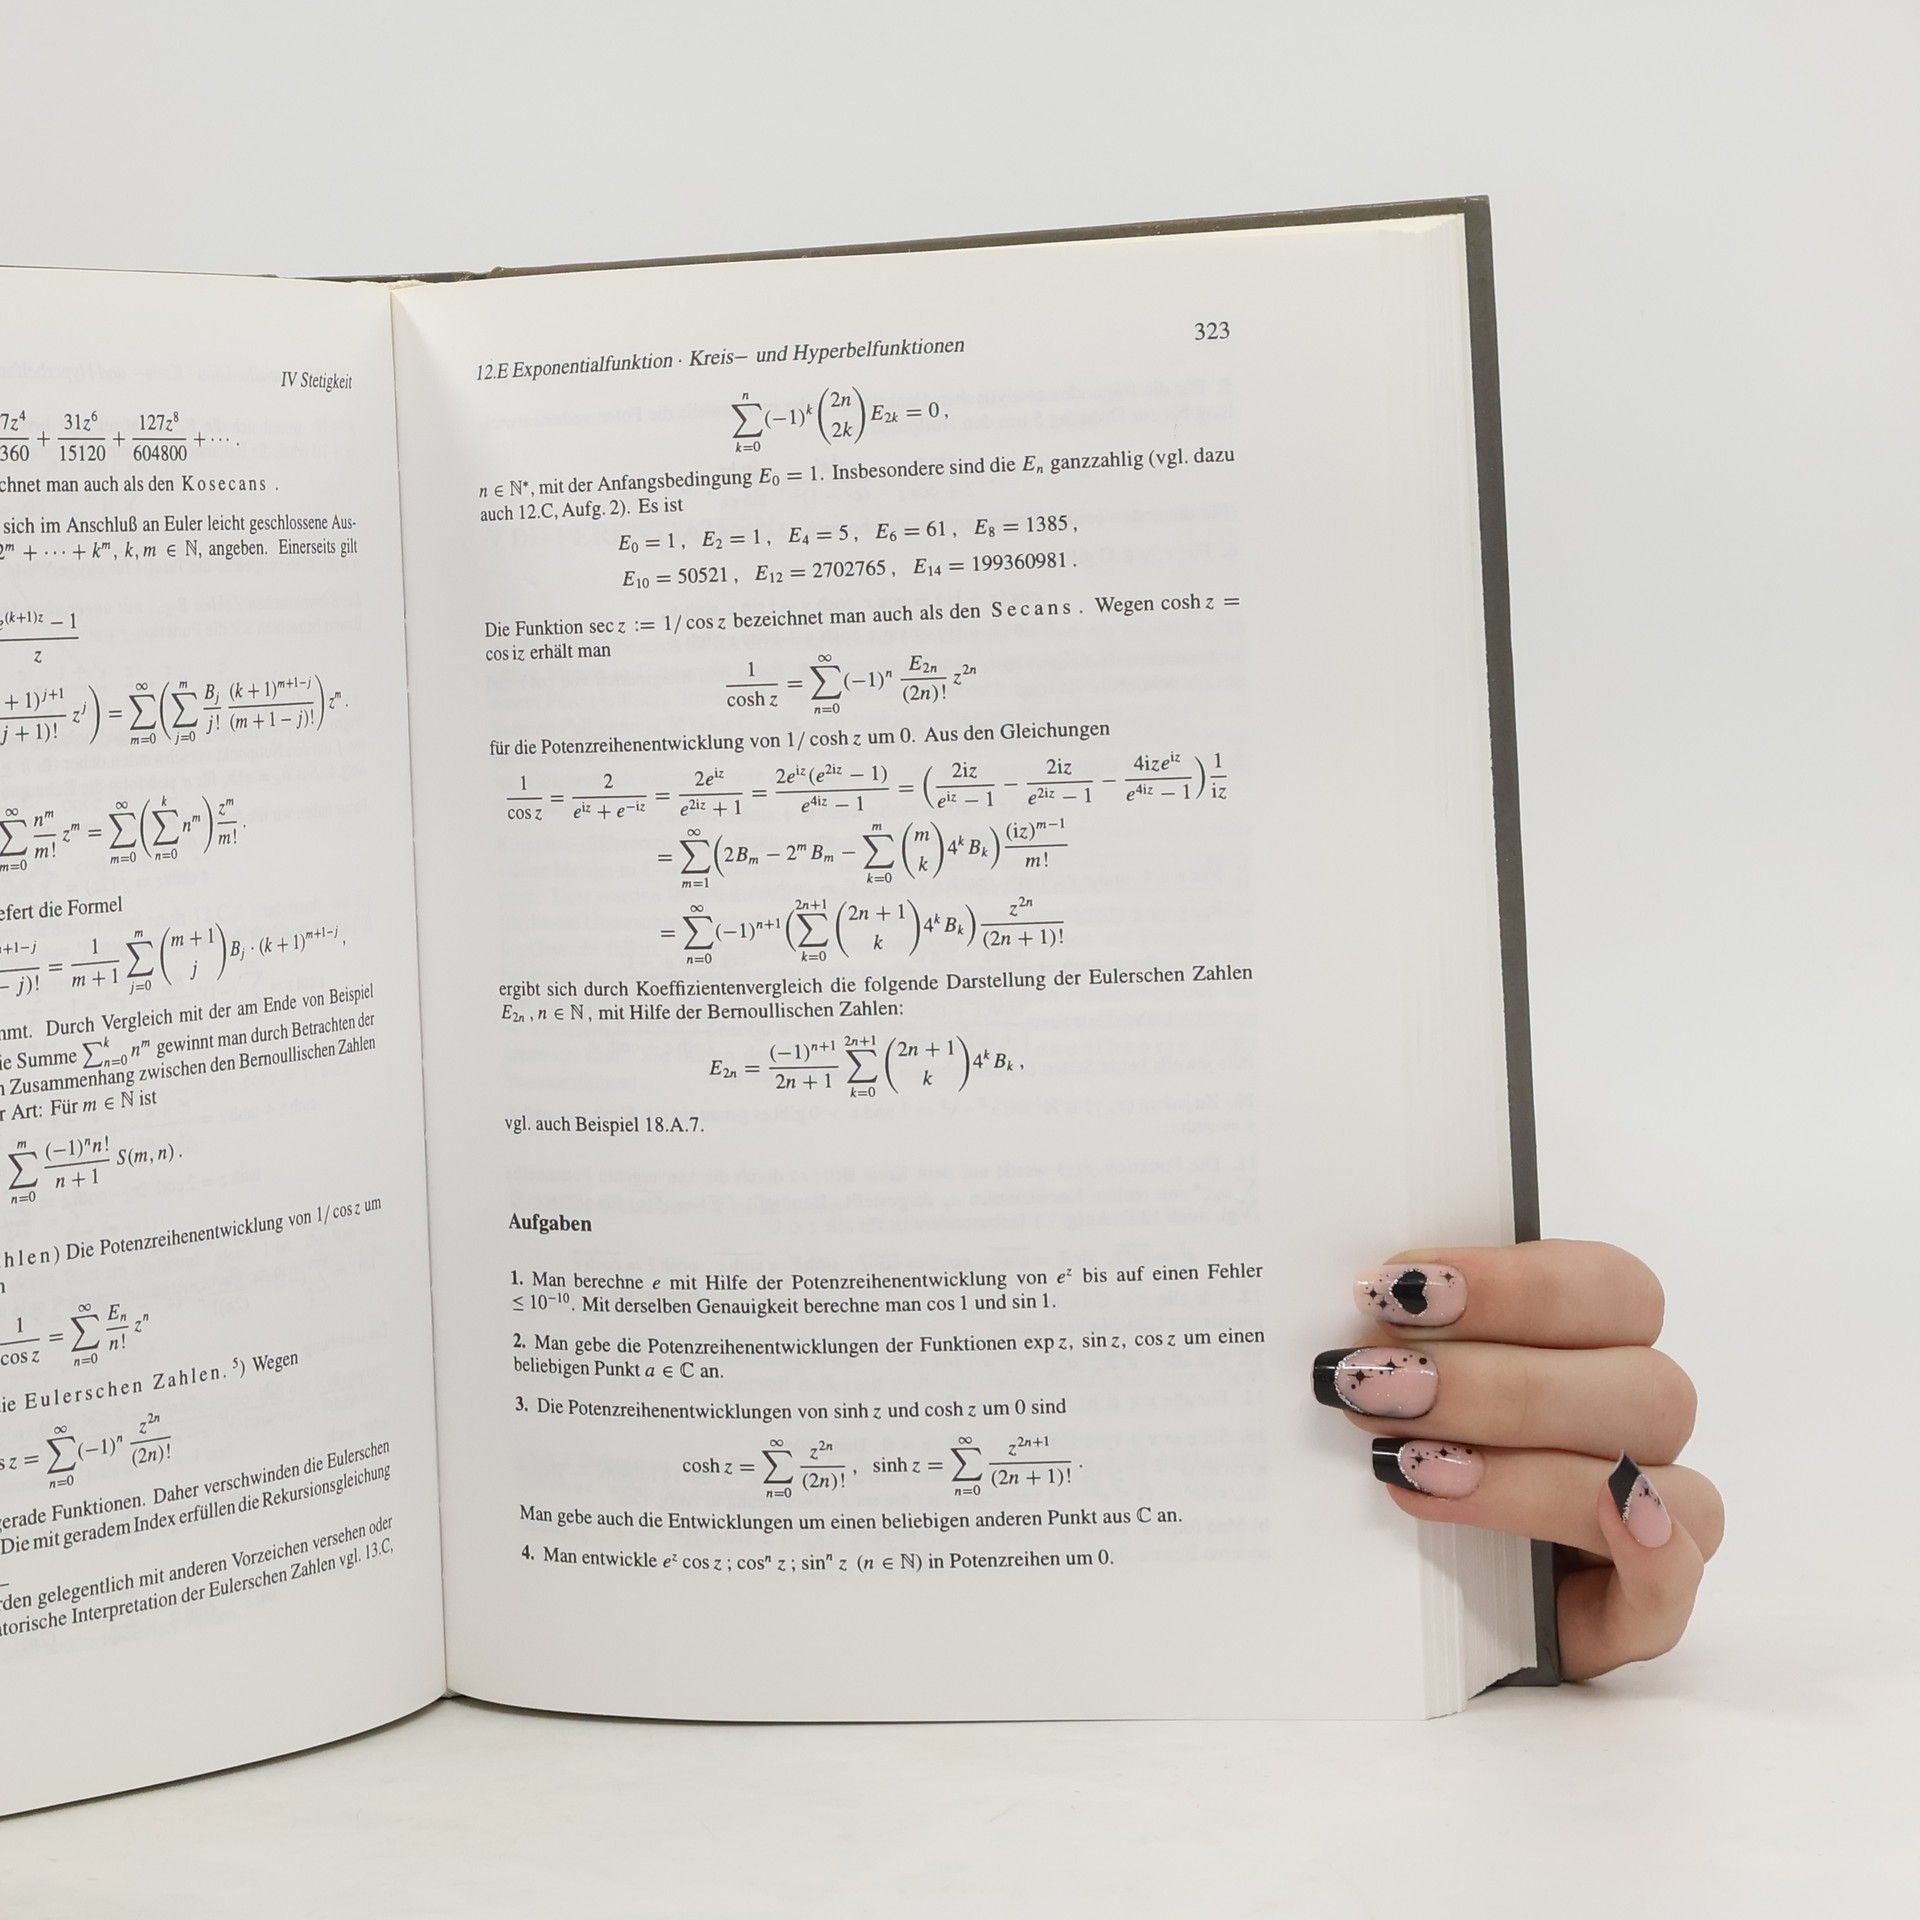 IV Stetigkeit
7z⁴/360 + 31z⁶/15120 + 127z⁸/604800 + ⋯ .
chnet man auch als den Kosecans .
sich im Anschluß an Euler leicht geschlossene Aus-
2ᵐ + ⋯ + kᵐ, k, m ∈ ℕ, angeben. Einerseits gilt
e^{(k+1)z} − 1 / z
+ 1)^{j+1} / j + 1)! z^j) = ∑_{m=0}^{∞} (∑_{j=0}^{m} B_j/j! (k+1)^{m+1−j}/(m+1−j)!) z^m .
∑_{m=0}^{∞} n^m/m! z^m = ∑_{m=0}^{∞} (∑_{n=0}^{k} n^m) z^m/m! .
efert die Formel
n+1−j / − j)! = 1/(m+1) ∑_{j=0}^{m} (m+1 über j) B_j · (k+1)^{m+1−j} ,
mmt. Durch Vergleich mit der am Ende von Beispiel
ie Summe ∑_{n=0}^{k} n^m gewinnt man durch Betrachten der
n Zusammenhang zwischen den Bernoullischen Zahlen
r Art: Für m ∈ ℕ ist
∑_{n=0}^{m} (−1)^n n!/(n+1) S(m, n) .
hlen) Die Potenzreihenentwicklung von 1/cos z um
n
1/cos z = ∑_{n=0}^{∞} E_n/n! z^n
ie Eulerschen Zahlen.⁵) Wegen
s z = ∑_{n=0}^{∞} (−1)^n z^{2n}/(2n)!
gerade Funktionen. Daher verschwinden die Eulerschen
Die mit geradem Index erfüllen die Rekursionsgleichung
rden gelegentlich mit anderen Vorzeichen versehen oder
atorische Interpretation der Eulerschen Zahlen vgl. 13.C,
12.E Exponentialfunktion · Kreis– und Hyperbelfunktionen 323
∑_{k=0}^{n} (−1)^k (2n über 2k) E_{2k} = 0 ,
n ∈ ℕ*, mit der Anfangsbedingung E₀ = 1. Insbesondere sind die E_n ganzzahlig (vgl. dazu
auch 12.C, Aufg. 2). Es ist
E₀ = 1 , E₂ = 1 , E₄ = 5 , E₆ = 61 , E₈ = 1385 ,
E₁₀ = 50521 , E₁₂ = 2702765 , E₁₄ = 199360981 .
Die Funktion sec z := 1/cos z bezeichnet man auch als den Secans . Wegen cosh z =
cos iz erhält man
1/cosh z = ∑_{n=0}^{∞} (−1)^n E_{2n}/(2n)! z^{2n}
für die Potenzreihenentwicklung von 1/cosh z um 0. Aus den Gleichungen
1/cos z = 2/(e^{iz} + e^{−iz}) = 2e^{iz}/(e^{2iz} + 1) = 2e^{iz}(e^{2iz} − 1)/(e^{4iz} − 1) = (2iz/(e^{iz} − 1) − 2iz/(e^{2iz} − 1) − 4ize^{iz}/(e^{4iz} − 1)) 1/iz
= ∑_{m=1}^{∞} (2B_m − 2^m B_m − ∑_{k=0}^{m} (m über k) 4^k B_k) (iz)^{m−1}/m!
= ∑_{n=0}^{∞} (−1)^{n+1} (∑_{k=0}^{2n+1} (2n + 1 über k) 4^k B_k) z^{2n}/(2n + 1)!
ergibt sich durch Koeffizientenvergleich die folgende Darstellung der Eulerschen Zahlen
E_{2n} , n ∈ ℕ , mit Hilfe der Bernoullischen Zahlen:
E_{2n} = (−1)^{n+1}/(2n + 1) ∑_{k=0}^{2n+1} (2n + 1 über k) 4^k B_k ,
vgl. auch Beispiel 18.A.7.
Aufgaben
1. Man berechne e mit Hilfe der Potenzreihenentwicklung von e^z bis auf einen Fehler
≤ 10⁻¹⁰. Mit derselben Genauigkeit berechne man cos 1 und sin 1.
2. Man gebe die Potenzreihenentwicklungen der Funktionen exp z, sin z, cos z um einen
beliebigen Punkt a ∈ ℂ an.
3. Die Potenzreihenentwicklungen von sinh z und cosh z um 0 sind
cosh z = ∑_{n=0}^{∞} z^{2n}/(2n)! , sinh z = ∑_{n=0}^{∞} z^{2n+1}/(2n + 1)! .
Man gebe auch die Entwicklungen um einen beliebigen anderen Punkt aus ℂ an.
4. Man entwickle e^z cos z ; cos^n z ; sin^n z (n ∈ ℕ) in Potenzreihen um 0.